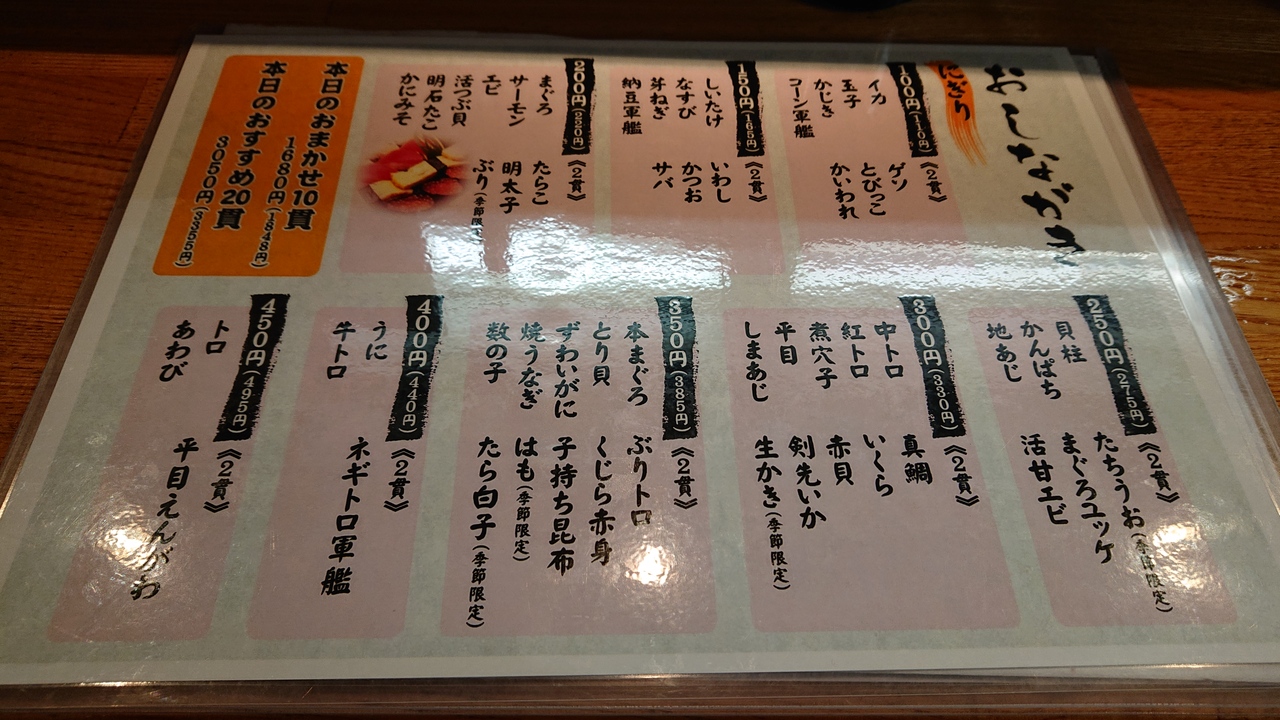 おしながき
にぎり
100円(110円)
《2貫》
イカ
玉子
かじき
コーン軍艦
ゲソ
とびっこ
かいわれ
150円(165円)
《2貫》
しいたけ
なすび
芽ねぎ
納豆軍艦
いわし
かつお
サバ
200円(220円)
《2貫》
まぐろ
サーモン
エビ
活つぶ貝
明石たこ
かにみそ
たらこ
明太子
ぶり(季節限定)
本日のおまかせ10貫
1680円(1848円)
本日のおすすめ20貫
3050円(3355円)
250円(275円)
《2貫》
貝柱
かんぱち
地あじ
たちうお(季節限定)
まぐろユッケ
活甘エビ
300円(330円)
《2貫》
中トロ
紅トロ
煮穴子
平目
しまあじ
真鯛
いくら
赤貝
剣先いか
生かき(季節限定)
350円(385円)
《2貫》
本まぐろ
とり貝
ずわいがに
焼うなぎ
数の子
ぶりトロ
くじら赤身
子持ち昆布
はも(季節限定)
たら白子(季節限定)
400円(440円)
《2貫》
うに
牛トロ
ネギトロ軍艦
450円(495円)
《2貫》
トロ
あわび
平目えんがわ